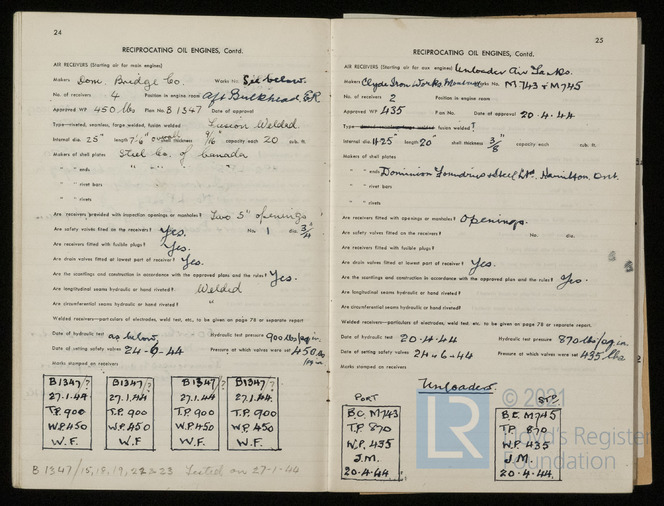 24
RECIPROCATING OIL ENGINES, Contd.
AIR RECEIVERS (Starting air for main engines)
Makers Dom. Bridge Co. Works No. See below.
No. of receivers 4 Position in engine room Aft Bulkhead E.R
Approved WP 450 lbs Plan No. B 1347 Date of approval
Type—riveted, seamless, forge welded, fusion welded Fusion Welded.
Internal dia. 25" length 7'-6" overall shell thickness 9/16" capacity each 20 cub. ft.
Makers of shell plates Steel Co. of Canada
" " ends " " "
" " rivet bars
" " rivets
Are receivers provided with inspection openings or manholes? Two 5" openings
Are safety valves fitted on the receivers? Yes. No. 1 dia. 3/4"
Are receivers fitted with fusible plugs? Yes.
Are drain valves fitted at lowest part of receiver? Yes.
Are the scantlings and construction in accordance with the approved plans and the rules? Yes.
Are longitudinal seams hydraulic or hand riveted? Welded
Are circumferential seams hydraulic or hand riveted? "
Welded receivers—particulars of electrodes, weld test, etc., to be given on page 78 or separate report
Date of hydraulic test as below Hydraulic test pressure 900 lbs/sq.in.
Date of setting safety valves 24-6-44 Pressure at which valves were set 450 lbs
/sq in
Marks stamped on receivers
B1347/? B1347/? B1347/? B1347/?
27.1.44 27.1.44 27.1.44 27.1.44.
T.P. 900 T.P. 900 T.P. 900 T.P. 900
W.P.450 W.P.450 W.P.450 W.P.450
W.F. W.F W.F. W.F.
B 1347/15,18,19,22&23 Tested on 27-1-44
25
RECIPROCATING OIL ENGINES, Contd.
AIR RECEIVERS (Starting air for aux. engines) Unloader Air Tanks.
Makers Clyde Iron Works Works No. M 743 & M745
No. of receivers 2 Position in engine room
Approved WP 435 Plan No. Date of approval 20-4-44
Type— fusion welded?
Internal dia. 11·25" length 20" shell thickness 3/8" capacity each cub. ft.
Makers of shell plates
" " ends Dominion Foundries & Steel Ltd. Hamilton, Ont.
" " rivet bars
" " rivets
Are receivers fitted with openings or manholes? Openings.
Are safety valves fitted on the receivers? No. dia.
Are receivers fitted with fusible plugs?
Are drain valves fitted at lowest part of receiver? Yes.
Are the scantlings and construction in accordance with the approved plan and the rules? Yes.
Are longitudinal seams hydraulic or hand riveted?
Are circumferential seams hydraulic or hand riveted?
Welded receivers—particulars of electrodes, weld test, etc. to be given on page 78 or separate report.
Date of hydraulic test 20-4-44 Hydraulic test pressure 870 lbs/sq.in.
Date of setting safety valves 24-6-44 Pressure at which valves were set 435 lbs
Marks stamped on receivers
Unloaders.
PORT STD.
B.C. M743 B.C. M745
T.P. 870 T.P. 870
W.P. 435 W.P. 435
J.M. J.M.
20-4-44. 20.4.44.
© 2021
LR Lloyd's Register
Foundation